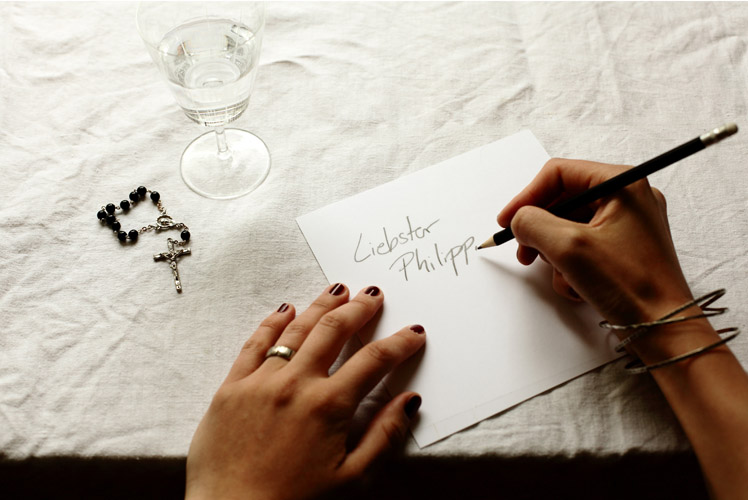 Liebster
Philipp.